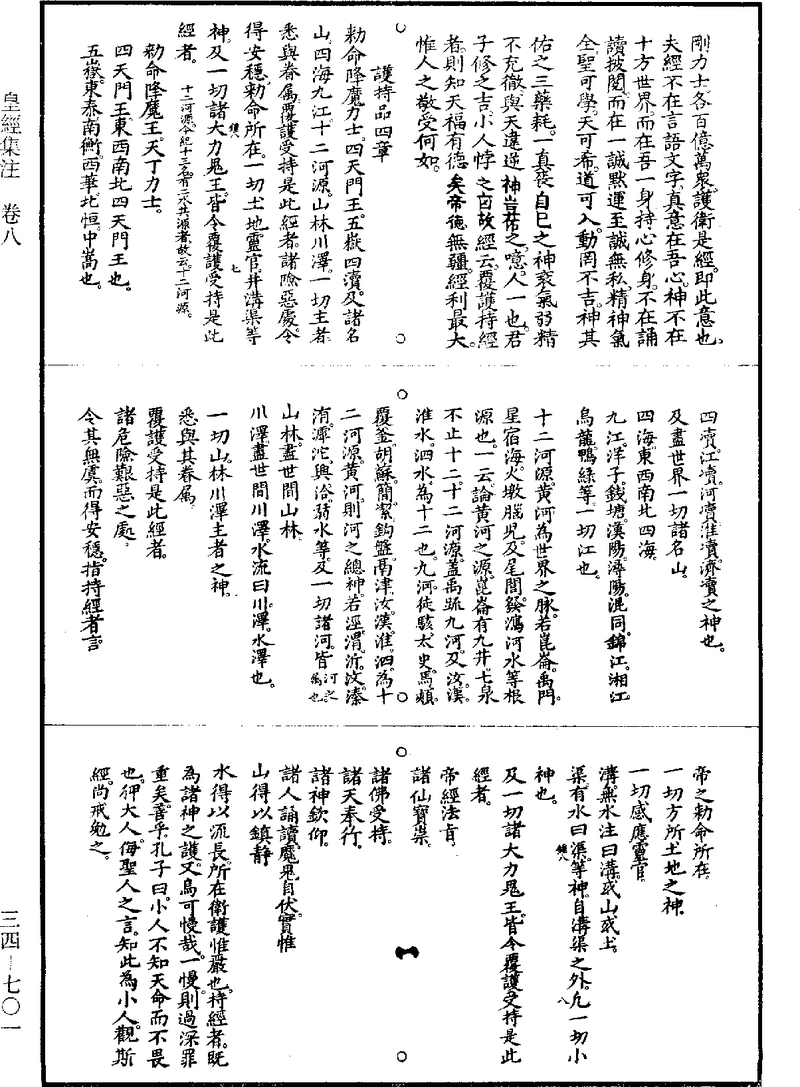 剛力士各百億萬衆護衛是經即此意也。
夫經不在言語文字真意在吾心神不在
十方世界而在吾一身持心修身不在誦
讀披閱而在一誠默運至誠無私精神氣
全聖可學天可希道可入動罔不吉神其
佑之三藥耗一真喪自己之神衰氣弱精
不充徹與天違逆神豈祐之噫人一也君
子修之吉小人悖之凶故經云覆護持經
者則知天福有德矣帝德無疆經利最大
惟人之敬受何如
護持品四章
勅命降魔力士四天門王五嶽四瀆及諸名
山四海九江十二河源山林川澤一切主者
悉與眷屬覆護受持是此經者諸險惡處令
得安穩勅命所在一切土地靈官井溝渠等
神及一切諸大力鬼王皆令覆護受持是此
經者。十二河源今紀十三名者有二水共源者故云十二河源
勅命降魔王天丁力士。
四天門王東西南北四天門王也。
五嶽東泰南衡西華北恒中嵩也。
四瀆江瀆河瀆淮瀆濟瀆之神也。
及盡世界一切諸名山。
四海東西南北四海
九江洋子錢塘漢陽潯陽混同錦江湘江
烏龍鴨綠等一切江也。
十二河源黃河為世界之脉若崑崙禹門
星宿海火墩腦兒及尾閭發鴻河水等根
源也一云論黃河之源崑崙有九井七泉
不止十二十二河源蓋禹䟽九河及汝漢
淮水泗水為十二也九河徒駭太史馬頰
覆釜胡蘇簡潔鈎盤鬲津汝漢淮泗為十
二河源黃河則河之總神若涇渭沂汶溱
洧滹沱與洽弱水等及一切諸河皆河之萬也
山林盡世間山林
川澤盡世間川澤水流曰川澤水澤也。
一切山林川澤主者之神。
悉與其眷屬
覆護受持是此經者
諸危險艱惡之處
令其無虞而得安穩指持經者言
帝之勅命所在
一切方所土地之神
一切感應靈官
溝無水注曰溝或山或土
渠有水曰渠等神自溝渠之外凡一切小
神也
及一切諸大力鬼王皆令覆護受持是此
經者
帝經法言
諸仙寶崇
諸佛受持
諸天奉行
諸神欽仰
諸人誦讀魔鬼自伏實惟
山得以鎮静
水得以流長所在衛護惟嚴也持經者既
為諸神之護又烏可慢哉一慢則過深罪
重矣善乎孔子曰小人不知天命而不畏
也狎大人侮聖人之言知此為小人觀斯
經尚戒勉之
皇經集注 卷八
三四—七〇一